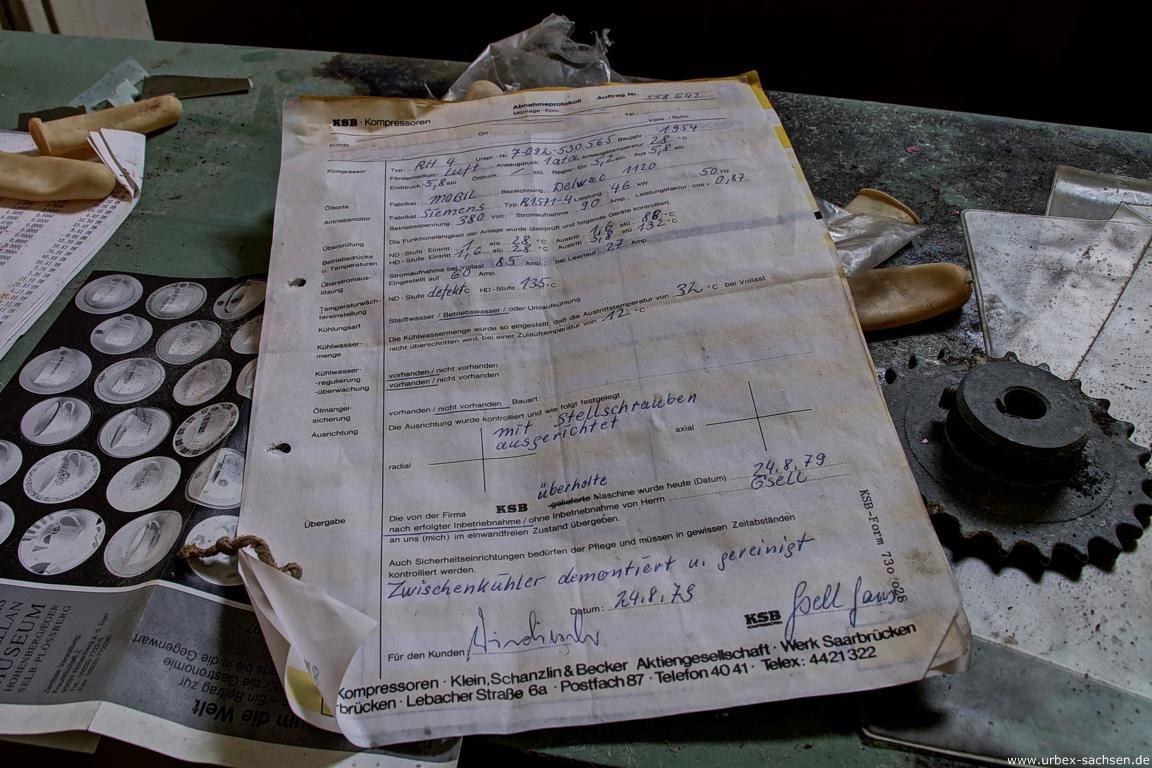 KSB · Kompressoren
Abnahmeprotokoll Auftrag Nr. 558 642
Montage-Kom.
Kunde Ort Tel.: Vorw./Rufnr.
Kompressor Typ: RH 4 Urspr.-Nr. 7-092-530 565 Baujahr 1954
Fördermedium: Luft Ansaugdruck 1 ata Ansaugtemperatur 28 °C
Enddruck 5,8 atü Öldruck: / atü Regler: Ein 5,2 atü Aus 5,8 atü
Ölsorte Fabrikat: MOBIL Bezeichnung: Delvac 1120
Antriebsmotor Fabrikat: Siemens Typ: R1571-4 Leistung: 46 kW 50 Hz
Betriebsspannung 380 Volt: Stromaufnahme 90 Amp.: Leistungsfaktor: cos φ 0,87
Überprüfung Die Funktionsfähigkeit der Anlage wurde überprüft und folgende Geräte kontrolliert.
Betriebsdrücke ND-Stufe: Eintritt 1 ata 28 °C Austritt 1,6 atü 88 °C
u. Temperaturen HD-Stufe: Eintritt 1,6 atü 28 °C Austritt 5,8 atü 132 °C
Überstromaus-
lösung Stromaufnahme bei Vollast 85 Amp.: bei Leerlauf 27 Amp.
Eingestellt auf 60 Amp.
Temperaturwäch-
tereinstellung ND-Stufe defekt °C HD-Stufe 135 °C
Kühlungsart Stadtwasser / Betriebswasser / oder Umlaufkühlung
Kühlwasser-
menge Die Kühlwassermenge wurde so eingestellt, daß die Austrittstemperatur von 32 °C bei Vollast
nicht überschritten wird, bei einer Zulauftemperatur von 12 °C
Kühlwasser-
-regulierung vorhanden / nicht vorhanden
-überwachung vorhanden / nicht vorhanden
Ölmangel-
sicherung vorhanden / nicht vorhanden Bauart:
Ausrichtung Die Ausrichtung wurde kontrolliert und wie folgt festgelegt:
mit Stellschrauben
ausgerichtet
radial axial
überholte
Übergabe Die von der Firma KSB gelieferte Maschine wurde heute (Datum) 24.8.79
nach erfolgter Inbetriebnahme / ohne Inbetriebnahme von Herrn Gsell
an uns (mich) im einwandfreien Zustand übergeben.
Auch Sicherheitseinrichtungen bedürfen der Pflege und müssen in gewissen Zeitabständen
kontrolliert werden.
Zwischenkühler demontiert u. gereinigt
Datum: 24.8.79
Für den Kunden KSB Gsell Hans
KSB-Form 730 028
Kompressoren · Klein, Schanzlin & Becker Aktiengesellschaft · Werk Saarbrücken
brücken · Lebacher Straße 6a · Postfach 87 · Telefon 40 41 · Telex: 4421 322
HOHENBERG/EGER
SELB-PLÖSSBERG
um die Welt
Ein Beitrag zur
für die Gastronomie
bis in die Gegenwart
www.urbex-sachsen.de